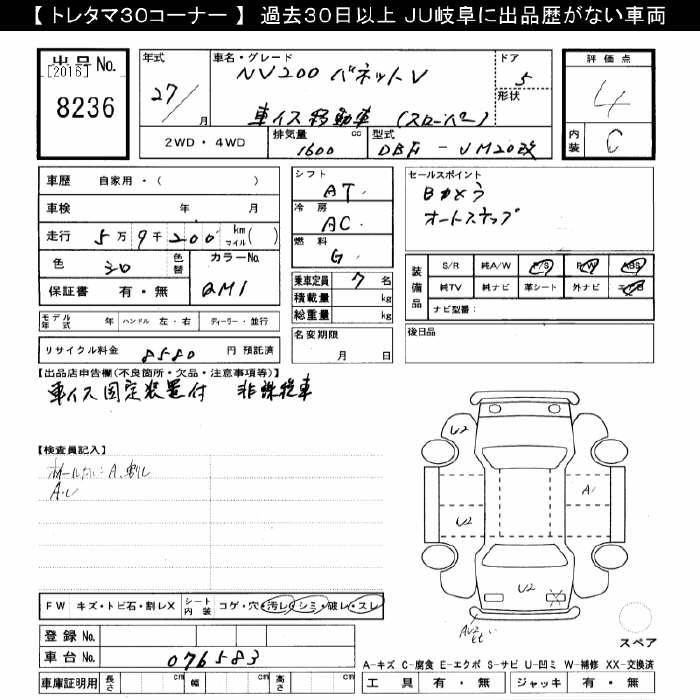 【 トレタマ30コーナー 】 過去30日以上 JU岐阜に出品歴がない車両
出品No.
[2016]
8236
年式
27/
月
車名・グレード
NV200 バネットV
車イス移動車 (スローパー)
ドア
5
形状
2WD・4WD
排気量
1600 cc
型式
DBF - JM20改
評価点
4
内装
C
車歴 自家用・( )
車検 年 月
走行 5万9千200 km マイル( )
色
シロ
色替
カラーNo.
QM1
保証書 有・無
シフト
AT
冷房
AC
燃料
G
乗車定員 7 名
積載量 kg
総重量 kg
セールスポイント
Bカメラ
オートステップ
装備品
S/R 純A/W P/S P/W ABS
純TV 純ナビ 革シート 外ナビ エアB
ナビ型番:
モデル年式 年 ハンドル 左・右 ディーラー・並行
リサイクル料金 8580 円 預託済
名変期限
月 日
後日品
【出品店申告欄(不良箇所・欠品・注意事項等)】
車イス固定装置付 非課税車
【検査員記入】
A、割レ
A・レ
U2
U2
A
U2
X
AU2
FW キズ・トビ石・割レX
シート内装
コゲ・穴・汚レ・シミ・破レ・スレ
スペア
登録No.
車台No. 076583
車庫証明用 長さ cm 幅 cm 高さ cm
A-キズ C-腐食 E-エクボ S-サビ U-凹ミ W-補修 XX-交換済
工具 有・無 ジャッキ 有・無